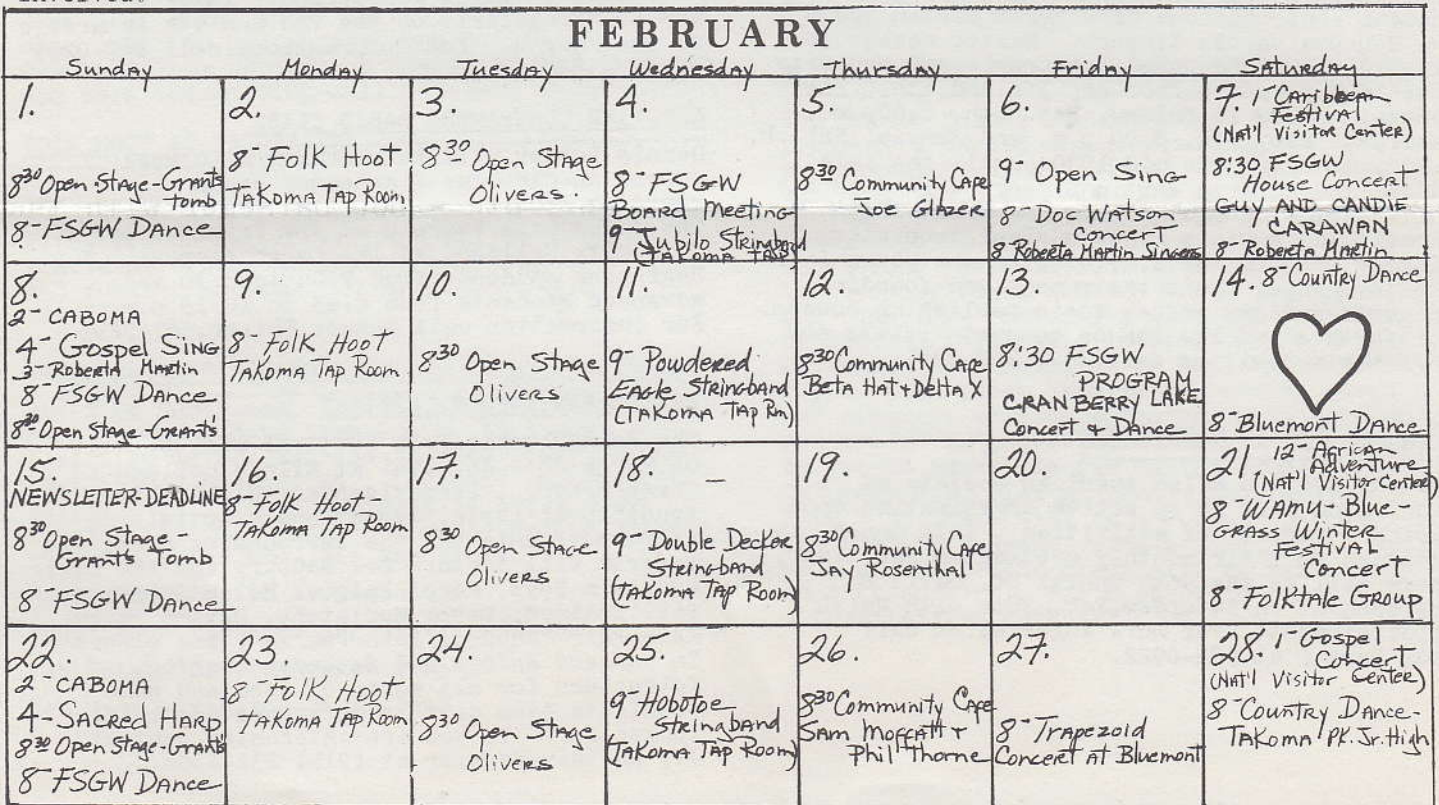 FEBRUARY
Sunday Monday Tuesday Wednesday Thursday Friday Saturday
1.
8³⁰ Open Stage-Grants
tomb
8-FSGW Dance
2.
8-Folk Hoot
Takoma Tap Room
3.
8³⁰ Open Stage
Olivers.
4.
8-FSGW
Board Meeting
9-Jubilo Stringband
(Takoma Tap)
5.
8³⁰ Community Cafe
Joe Glazer
6.
9-Open Sing
8-Doc Watson
Concert
8 Roberta Martin Singers
7. 1-Caribbean
Festival
(Nat'l Visitor Center)
8:30 FSGW
House Concert
GUY AND CANDIE
CARAWAN
8-Roberta Martin
8.
2-CABOMA
4-Gospel Sing
3-Roberta Martin
8-FSGW Dance
8³⁰-Open Stage-Grant's
9.
8-Folk Hoot
Takoma Tap Room
10.
8³⁰ Open Stage
Olivers
11.
9-Powdered
Eagle Stringband
(Takoma Tap Rm)
12.
8³⁰ Community Cafe
Beta Hat + Delta X
13.
8:30 FSGW
PROGRAM
CRANBERRY LAKE
Concert + Dance
14. 8-Country Dance
8-Bluemont Dance
15.
NEWSLETTER-DEADLINE
8³⁰ Open Stage-
Grant's Tomb
8-FSGW Dance
16.
8-Folk Hoot-
Takoma Tap Room
17.
8³⁰ Open Stage
Olivers
18. -
9-Double Decker
Stringband
(Takoma Tap Room)
19.
8³⁰ Community Cafe
Jay Rosenthal
20.
21 12-African
Adventure
(Nat'l Visitor Center)
8-WAMU-Blue-
grass Winter
Festival
Concert
8-Folktale Group
22.
2-CABOMA
4-Sacred Harp
8³⁰ Open Stage-Grant's
8-FSGW Dance
23.
8-Folk Hoot
Takoma Tap Room
24.
8³⁰ Open Stage
Olivers
25.
9-Hobotoe
Stringband
(Takoma Tap Room)
26.
8³⁰ Community Cafe
Sam Moffatt +
Phil Thorne
27.
8-Trapezoid
Concert at Bluemont
28. 1-Gospel
Concert
(Nat'l Visitor Center)
8-Country Dance-
Takoma Pk. Jr. High